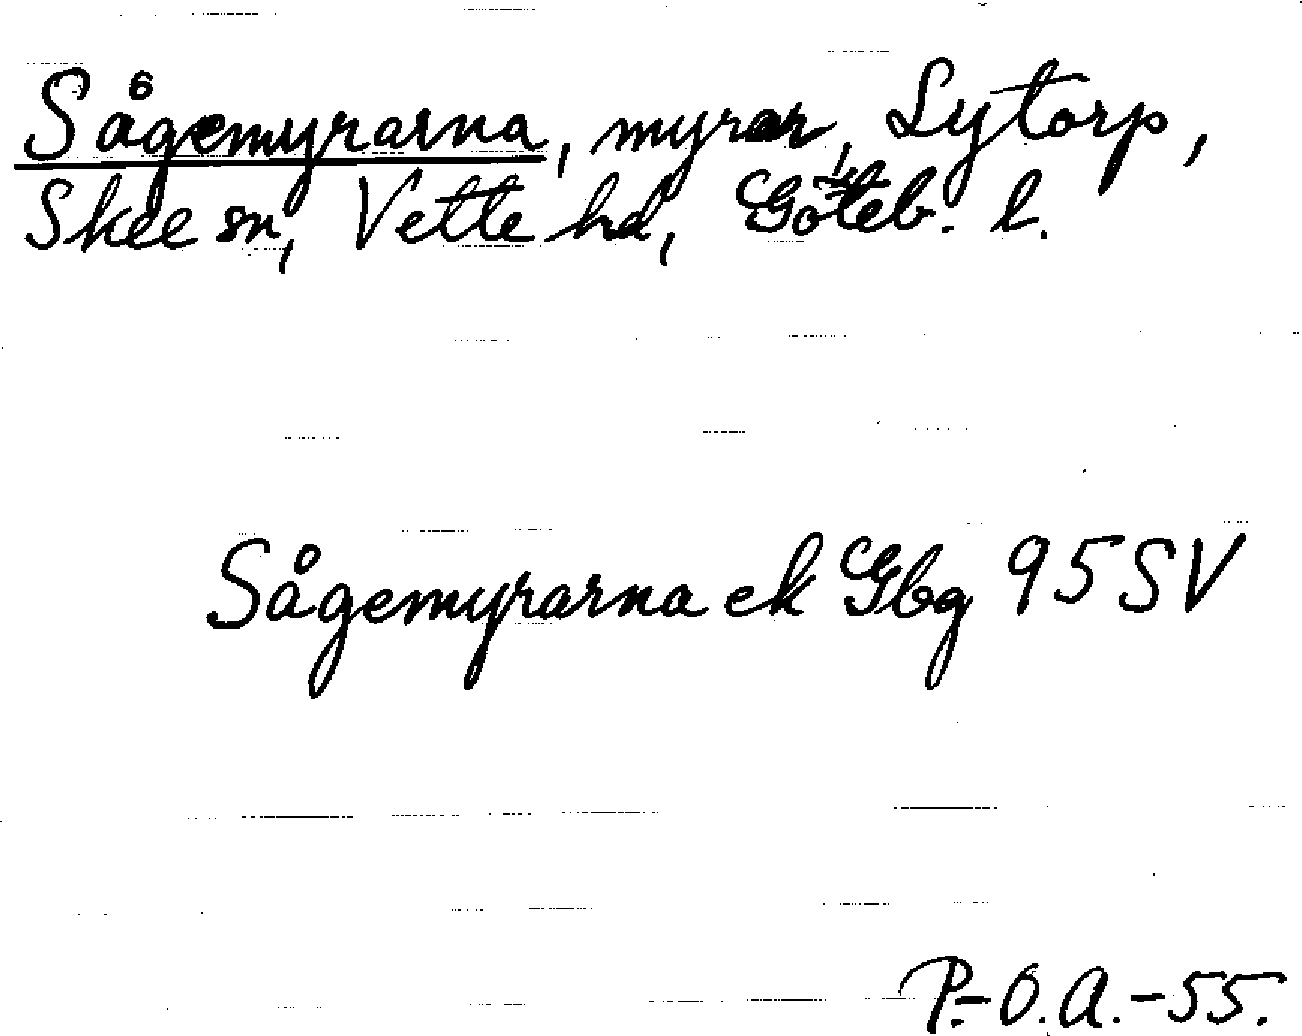 Sågemyrarna, myrar, Lytorp,
Skee sn, Vette hd, Göteb. l.
Sågemyrarna ek Gbg 95 SV
P.-O.A.-55.